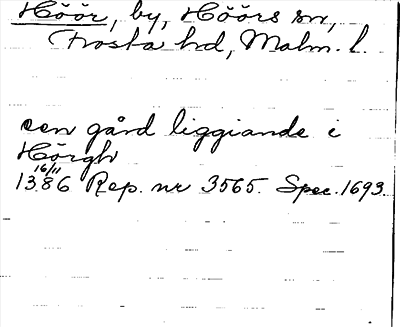 Höör, by, Höörs sn,
Frosta hd, Malm. l.
een gård liggiande i
Hörgh
16/11
1386 Rep. nr 3565. Spec. 1693.